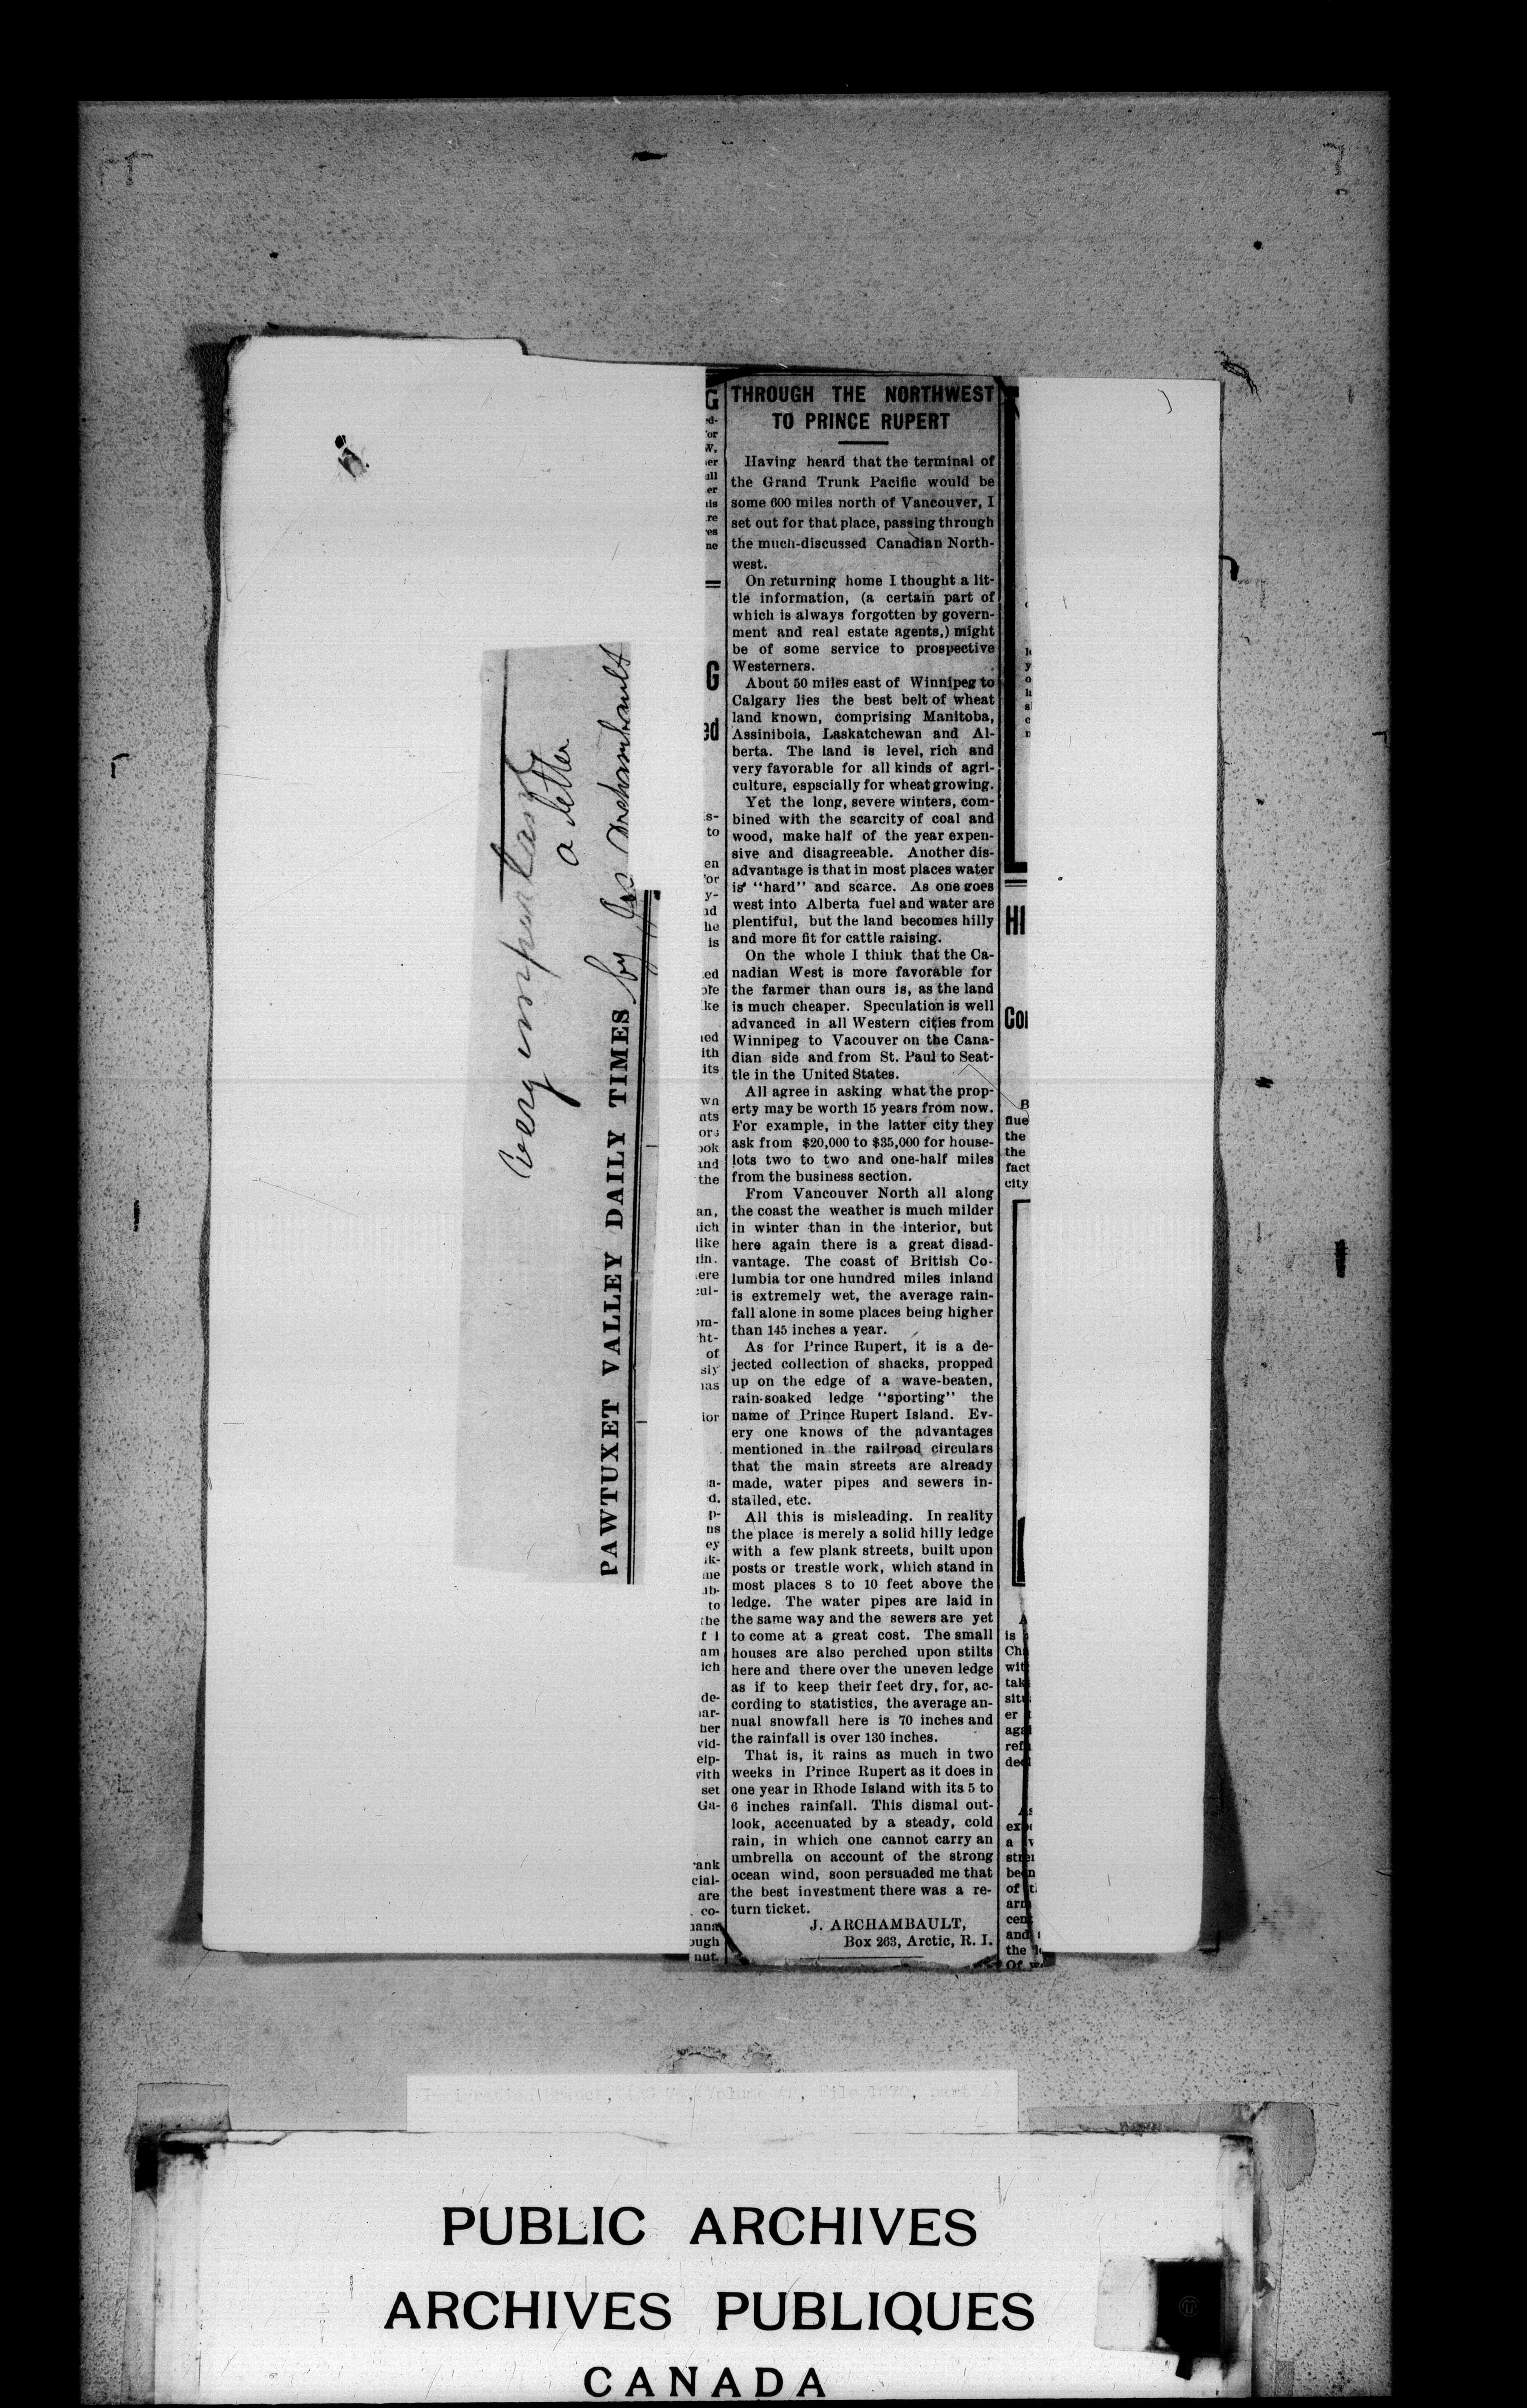 very important
a letter
by Jos Archambault
PAWTUXET VALLEY DAILY TIMES
THROUGH THE NORTHWEST
TO PRINCE RUPERT
Having heard that the terminal of
the Grand Trunk Pacific would be
some 600 miles north of Vancouver, I
set out for that place, passing through
the much-discussed Canadian North-
west.
On returning home I thought a lit-
tle information, (a certain part of
which is always forgotten by govern-
ment and real estate agents,) might
be of some service to prospective
Westerners.
About 50 miles east of Winnipeg to
Calgary lies the best belt of wheat
land known, comprising Manitoba,
Assiniboia, Laskatchewan and Al-
berta. The land is level, rich and
very favorable for all kinds of agri-
culture, espscially for wheat growing.
Yet the long, severe winters, com-
bined with the scarcity of coal and
wood, make half of the year expen-
sive and disagreeable. Another dis-
advantage is that in most places water
is "hard" and scarce. As one goes
west into Alberta fuel and water are
plentiful, but the land becomes hilly
and more fit for cattle raising.
On the whole I think that the Ca-
nadian West is more favorable for
the farmer than ours is, as the land
is much cheaper. Speculation is well
advanced in all Western cities from
Winnipeg to Vacouver on the Cana-
dian side and from St. Paul to Seat-
tle in the United States.
All agree in asking what the prop-
erty may be worth 15 years from now.
For example, in the latter city they
ask from $20,000 to $35,000 for house-
lots two to two and one-half miles
from the business section.
From Vancouver North all along
the coast the weather is much milder
in winter than in the interior, but
here again there is a great disad-
vantage. The coast of British Co-
lumbia tor one hundred miles inland
is extremely wet, the average rain-
fall alone in some places being higher
than 145 inches a year.
As for Prince Rupert, it is a de-
jected collection of shacks, propped
up on the edge of a wave-beaten,
rain-soaked ledge "sporting" the
name of Prince Rupert Island. Ev-
ery one knows of the advantages
mentioned in the railroad circulars
that the main streets are already
made, water pipes and sewers in-
stalled, etc.
All this is misleading. In reality
the place is merely a solid hilly ledge
with a few plank streets, built upon
posts or trestle work, which stand in
most places 8 to 10 feet above the
ledge. The water pipes are laid in
the same way and the sewers are yet
to come at a great cost. The small
houses are also perched upon stilts
here and there over the uneven ledge
as if to keep their feet dry, for, ac-
cording to statistics, the average an-
nual snowfall here is 70 inches and
the rainfall is over 130 inches.
That is, it rains as much in two
weeks in Prince Rupert as it does in
one year in Rhode Island with its 5 to
6 inches rainfall. This dismal out-
look, accenuated by a steady, cold
rain, in which one cannot carry an
umbrella on account of the strong
ocean wind, soon persuaded me that
the best investment there was a re-
turn ticket.
J. ARCHAMBAULT,
Box 263, Arctic, R. I.
Immigration Branch, (RG 76, Volume 42, File 1070, part 4)
PUBLIC ARCHIVES
ARCHIVES PUBLIQUES
CANADA